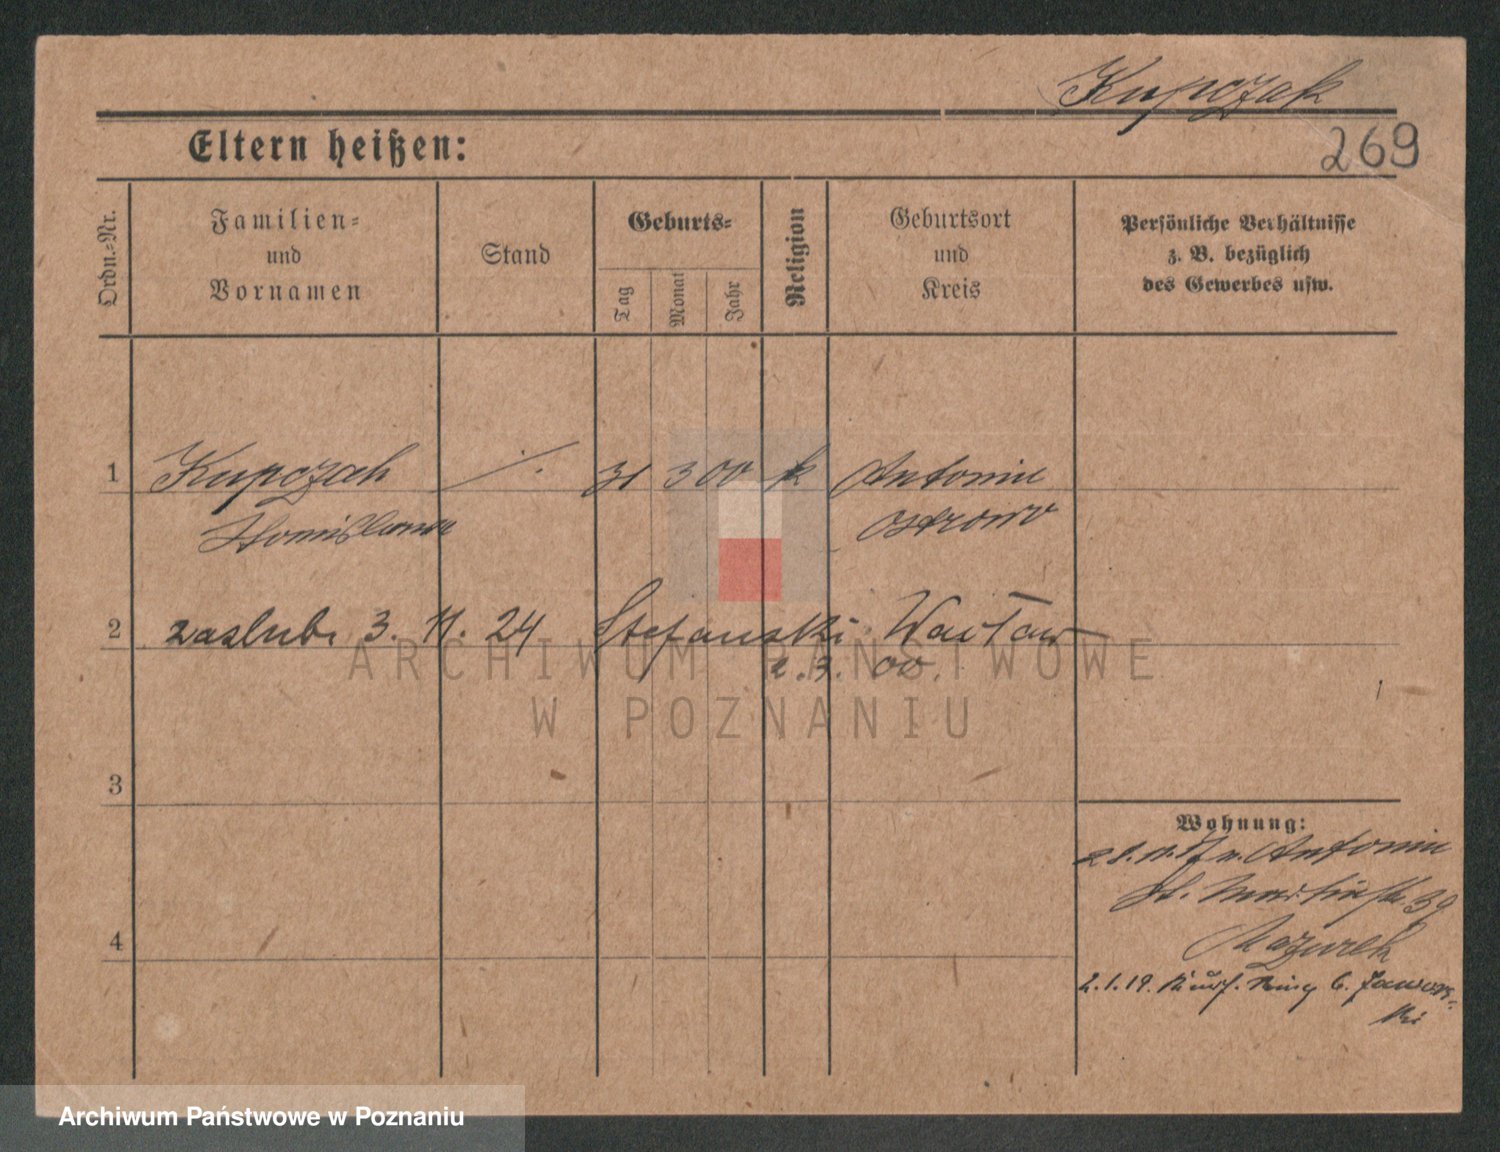 Kupczak
269
Eltern heißen:
Ordn.-Nr.
Familien-
und
Vornamen
Stand
Geburts-
Tag
Monat
Jahr
Religion
Geburtsort
und
Kreis
Persönliche Verhältnisse
z. B. bezüglich
des Gewerbes usw.
1 Kupczak ·/. 31 3 00 k Antonin
Stanislawa Ostrowo
2 zaślub. 3. 11. 24 Stefański Wacław
2. 3. 00.
3
Wohnung:
Antonin
St. Martinstr. 39
Mazurek
4
2.1.19. Ring 6. Jawors-
ki
ARCHIWUM PAŃSTWOWE
W POZNANIU
Archiwum Państwowe w Poznaniu